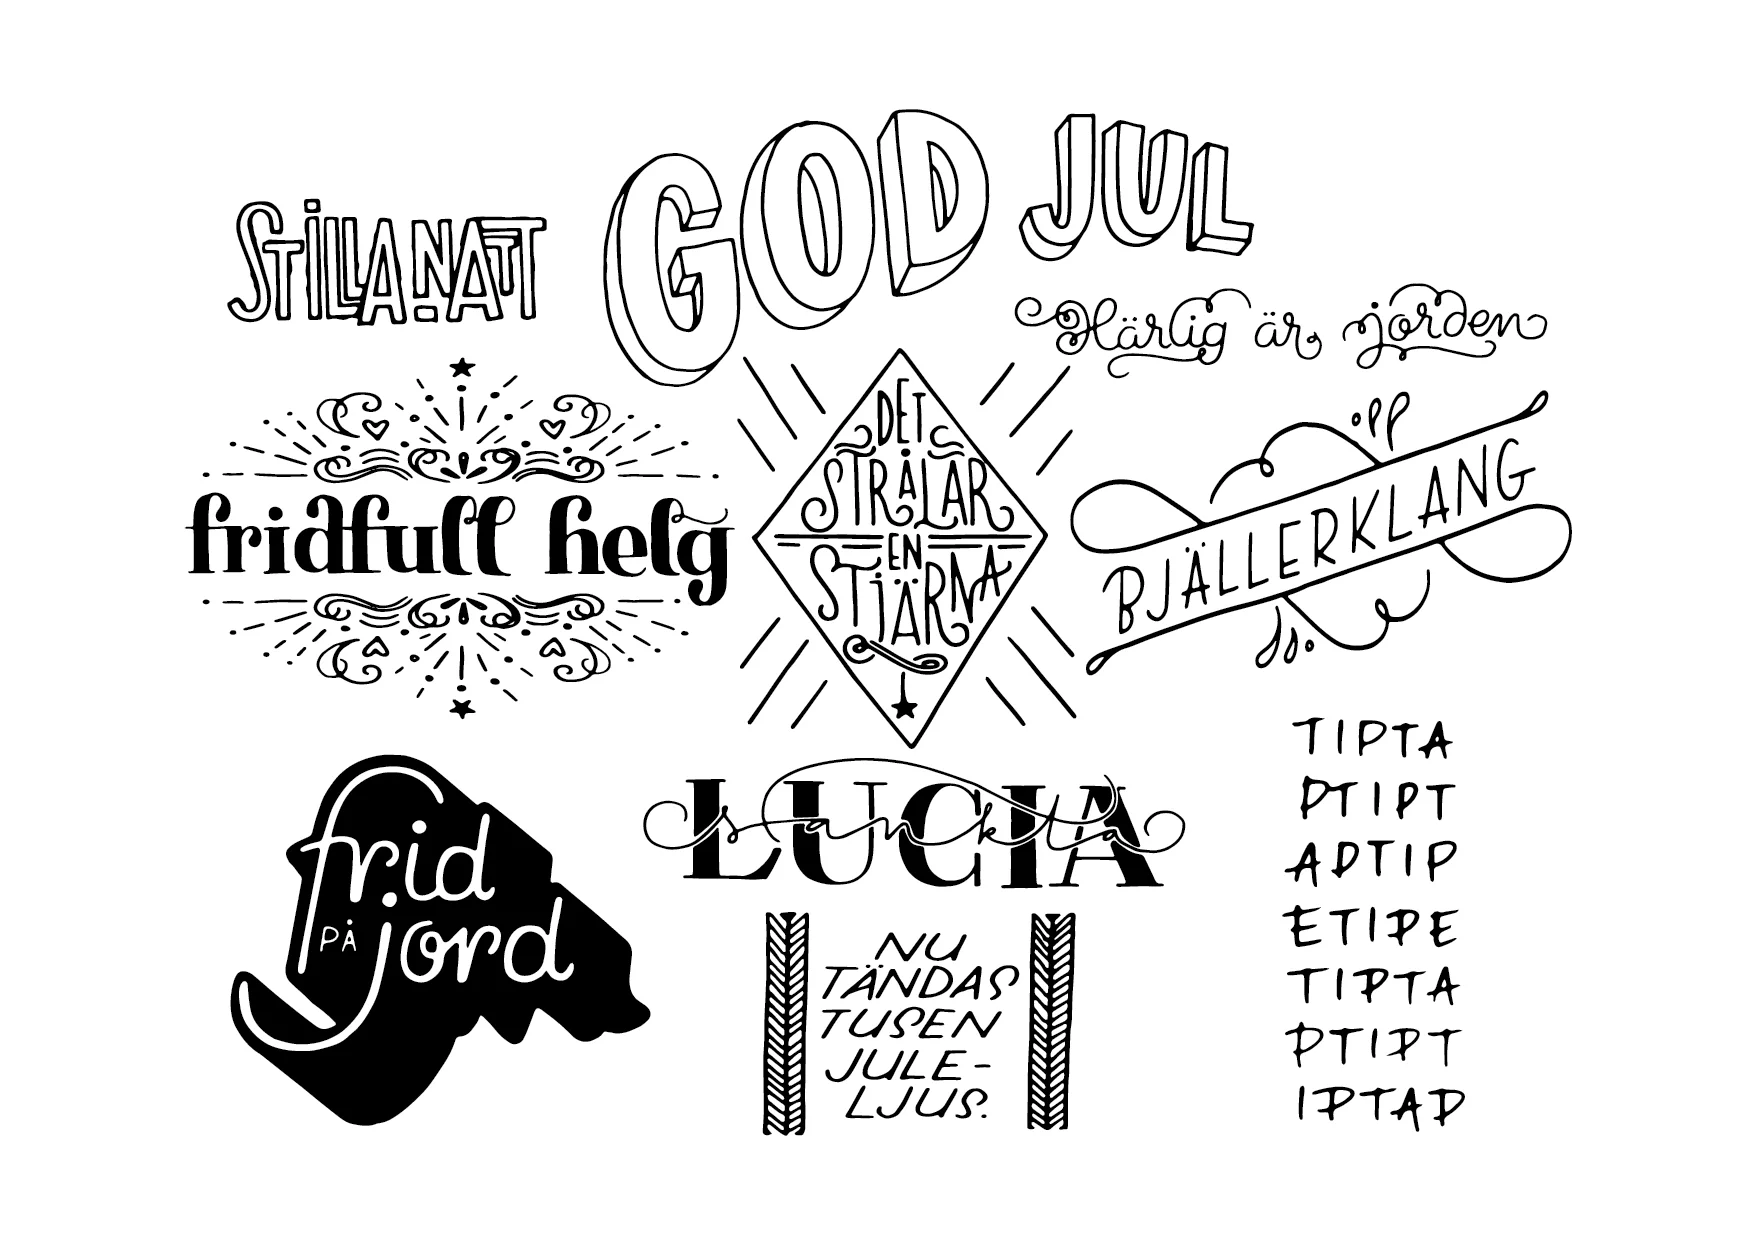 GOD JUL
STILLA NATT
Härlig är jorden
fridfull helg
DET
STRÅLAR
EN
STJÄRNA
BJÄLLERKLANG
frid
PÅ jord
sankta
LUCIA
NU
TÄNDAS
TUSEN
JULE-
LJUS.
TIPTA
PTIPT
APTIP
ETIPE
TIPTA
PTIPT
IPTAP